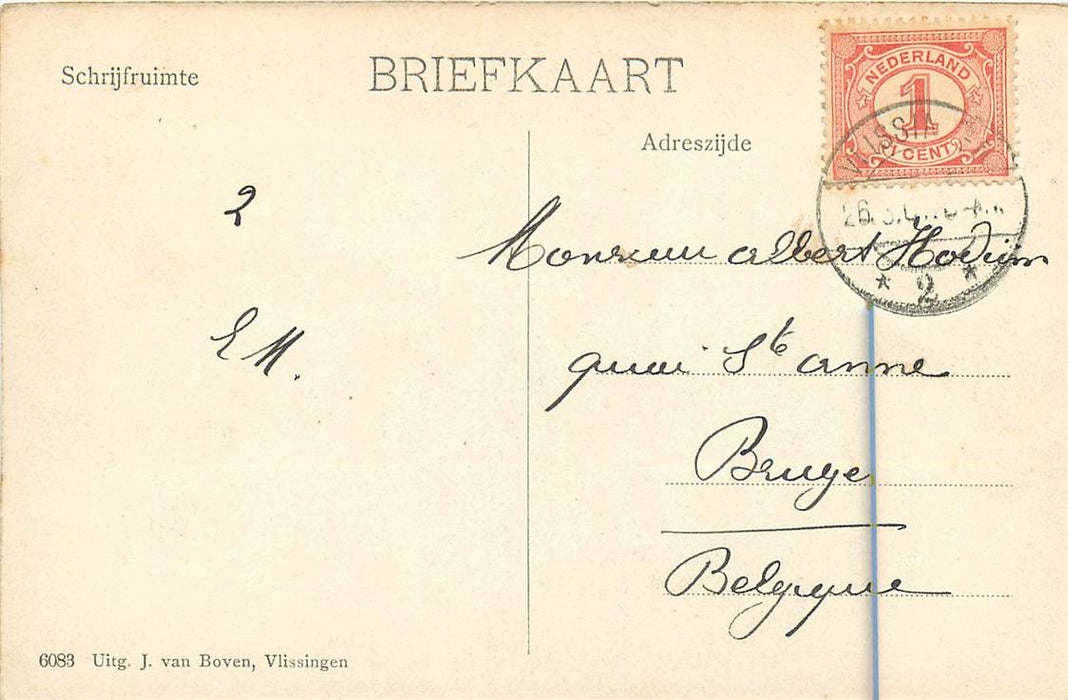 Schrijfruimte
BRIEFKAART
NEDERLAND
1
1 CENT
VLISSI
2
Adreszijde
2
Monsieur Albert Hodium
quai Ste anne
Bruges
Belgique
E M.
6083 Uitg. J. van Boven, Vlissingen